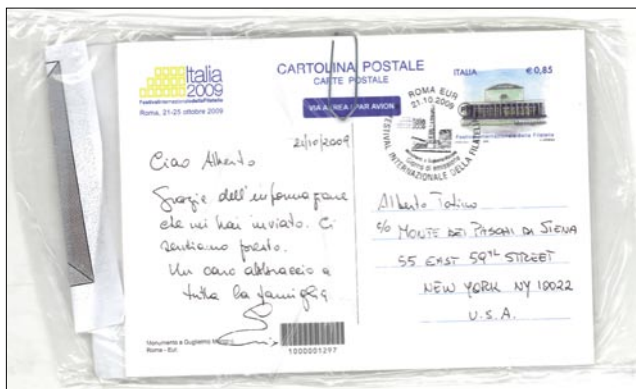 Italia
2009
FestivalInternazionaledellaFilatelia
Roma, 21-25 ottobre 2009
CARTOLINA POSTALE
CARTE POSTALE
VIA AEREA PAR AVION
ITALIA €0,85
Festival Internazionale della Filatelia
ROMA EUR
21.10.2009
Giorno di emissione
FESTIVAL INTERNAZIONALE DELLA FILATELIA
21/10/2009
Ciao Alberto
Grazie dell'informazione
che mi hai inviato. Ci
sentiamo presto.
Un caro abbraccio a
tutta la famiglia
Alberto
c/o MONTE DEI PASCHI DI SIENA
55 EAST 59TH STREET
NEW YORK NY 10022
U.S.A.
Monumento a Guglielmo
Roma - Eur.
1000001297